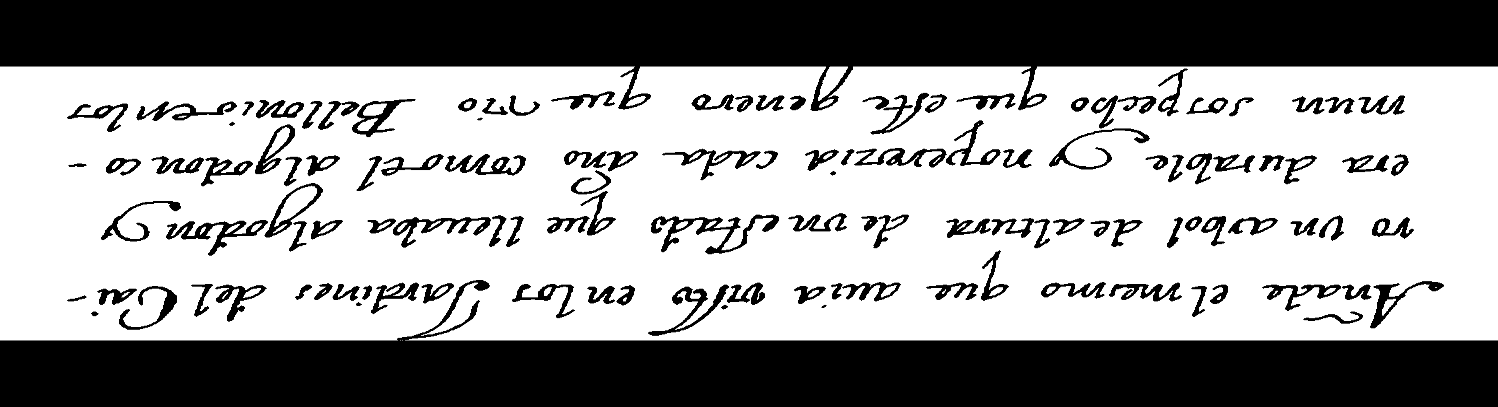 Añade el mesmo que auia visto en los Jardines del Cai-
ro vn arbol de altura de vn estado que lleuaba algodon y
era durable, y no perezia cada año como el algodon co-
mun sospecho que este genero que vio Bellonio en los